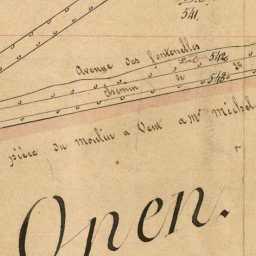 541.
Avenue des fontenelles
542
chemin de
548
pièce du moulin a Vent a mr michel
Open.